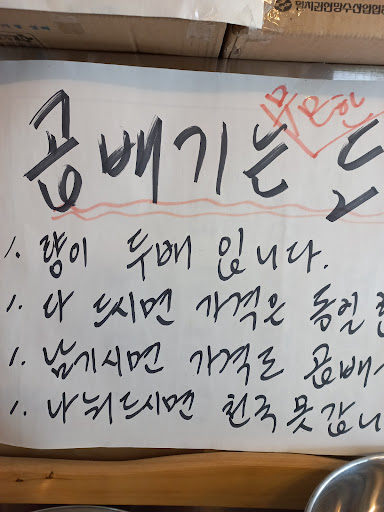 무한
곱배기는
1. 량이 두배 입니다.
1. 다 드시면 가격은 동일
1. 남기시면 가격도 곱배
1. 나눠드시면 천국 못갑니